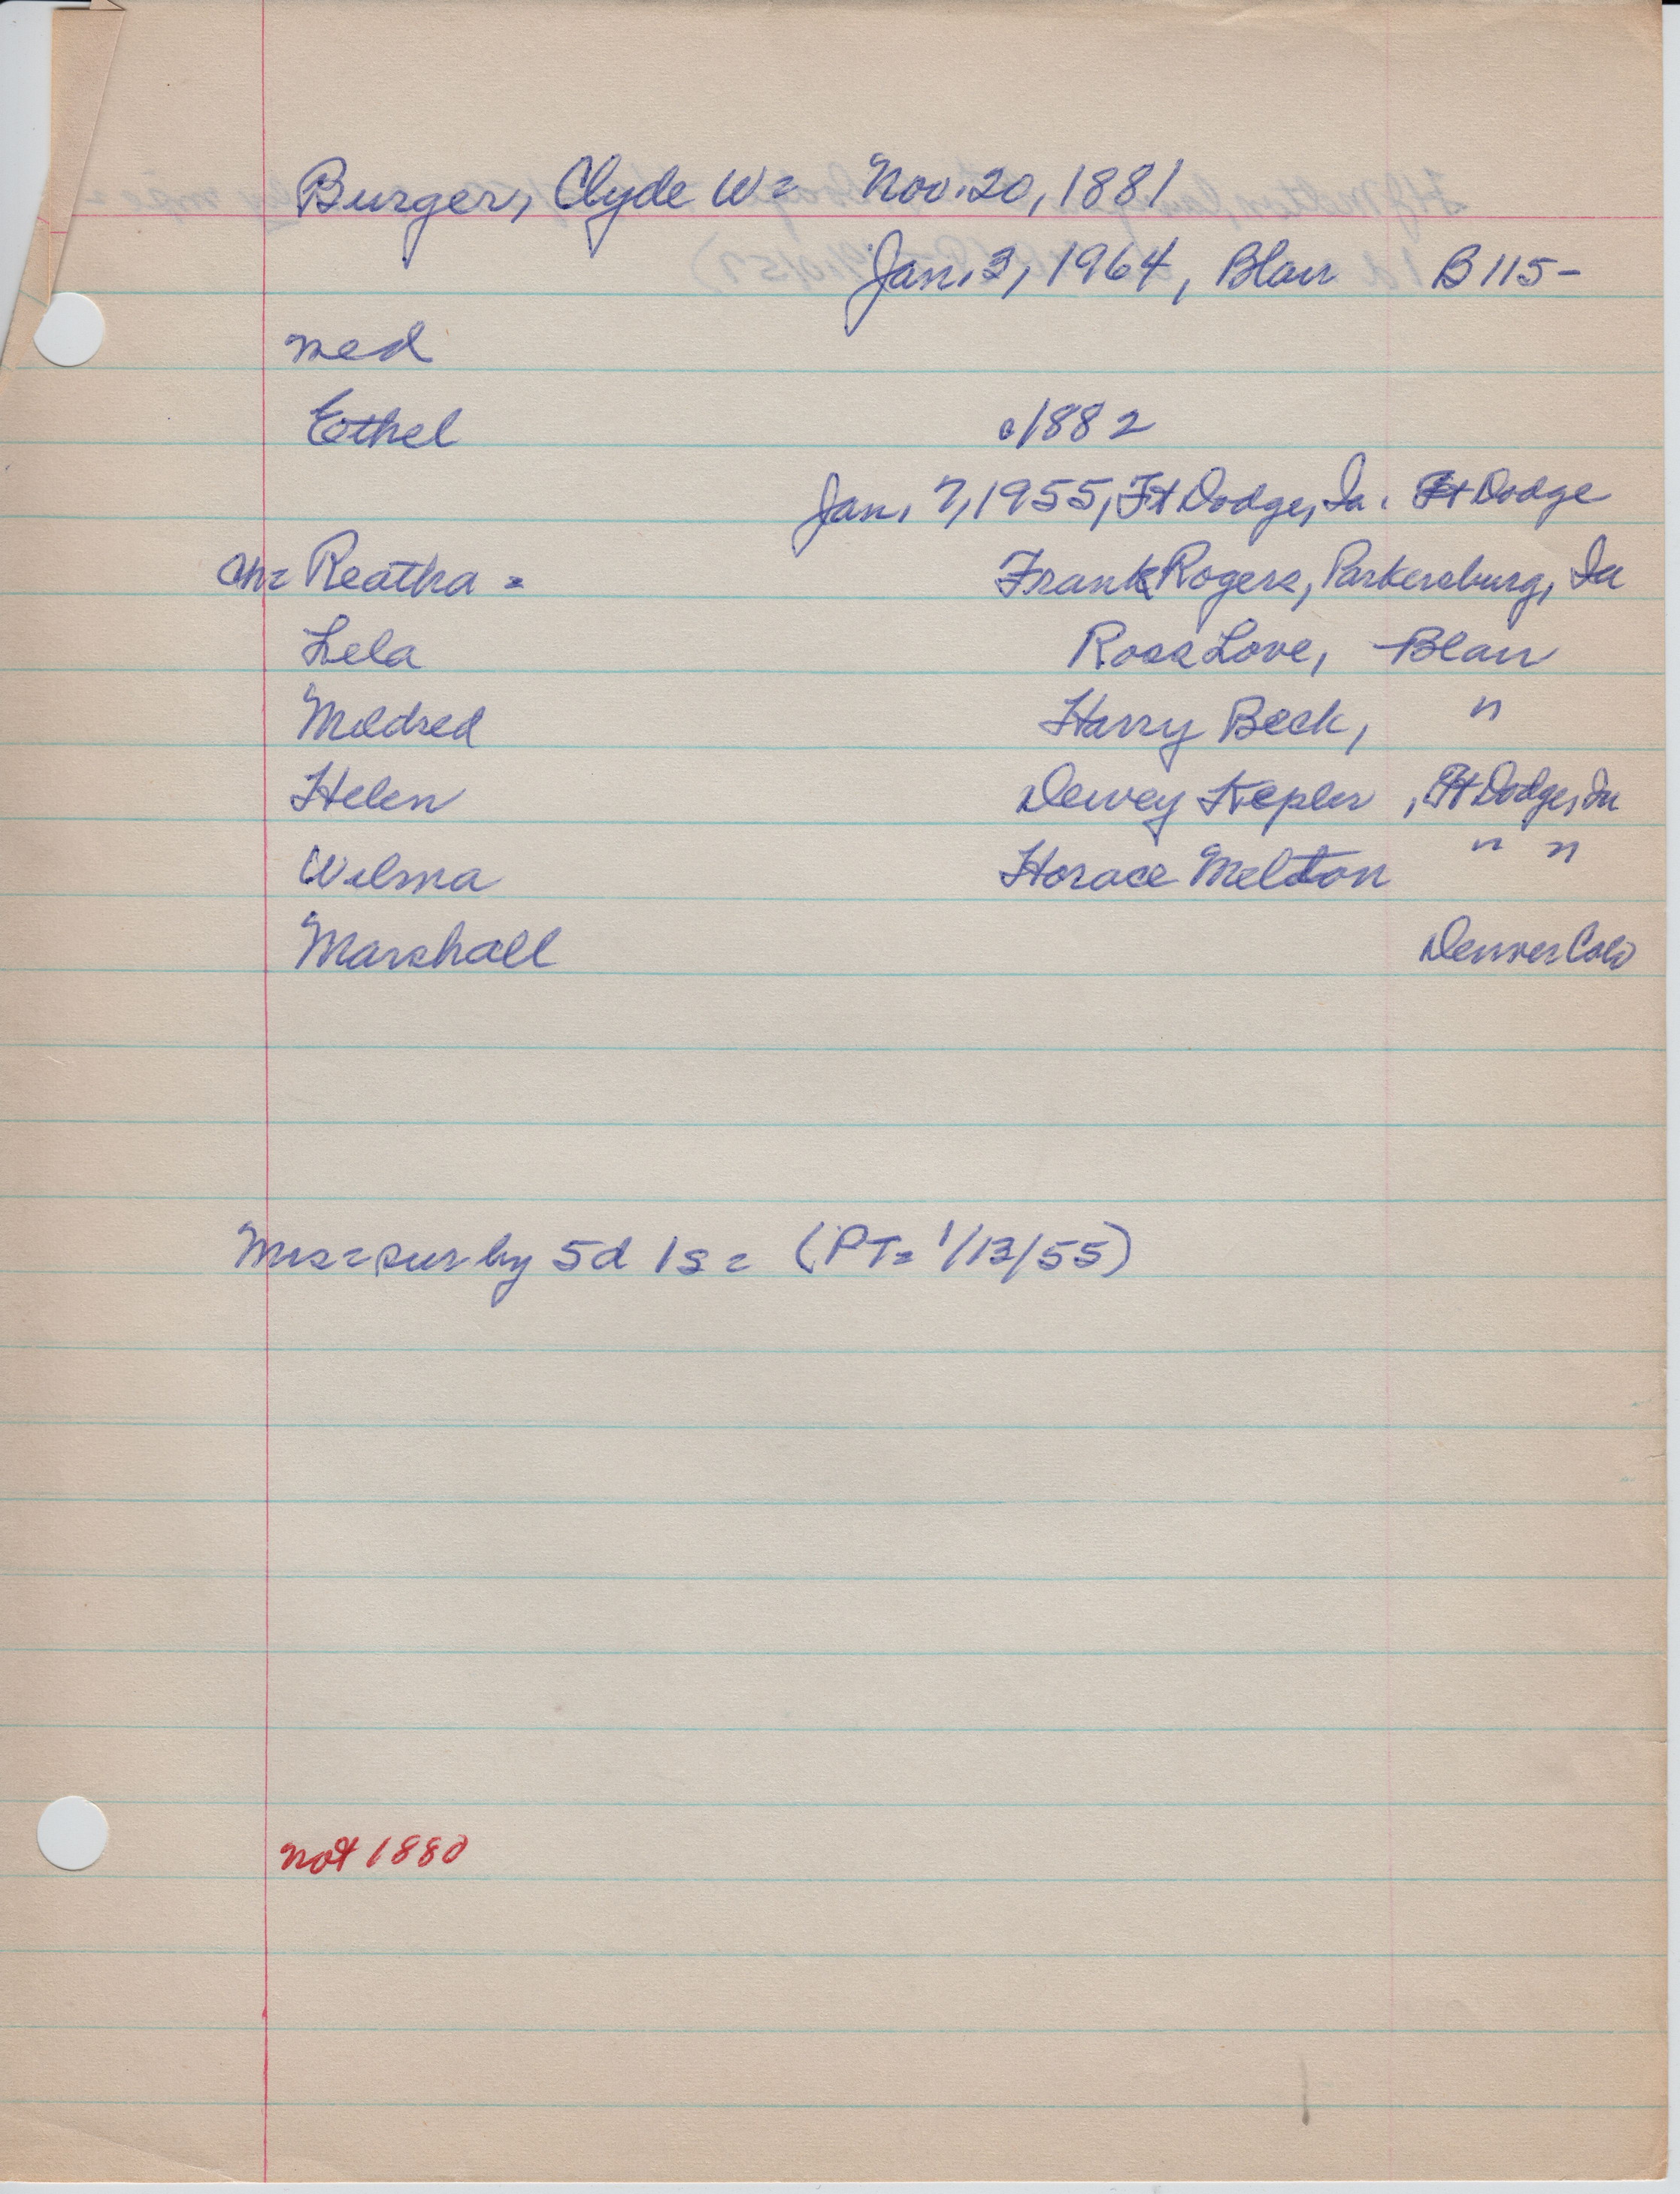 Burger, Clyde W= Nov. 20, 1881
Jan. 3, 1964, Blair B 115-
med
Ethel c1882
Jan. 7, 1955, Ft Dodge, Ia. Ft Dodge
Ch= Reatha = Frank Rogers, Parkersburg, Ia
Lela Ross Love, Blair
Mildred Harry Beck, "
Helen Dewey Kepler, Ft Dodge, Ia
Wilma Horace Melton " "
Marshall Denver Colo
Mrs = sur by 5d 1s = (PT= 1/13/55)
not 1880